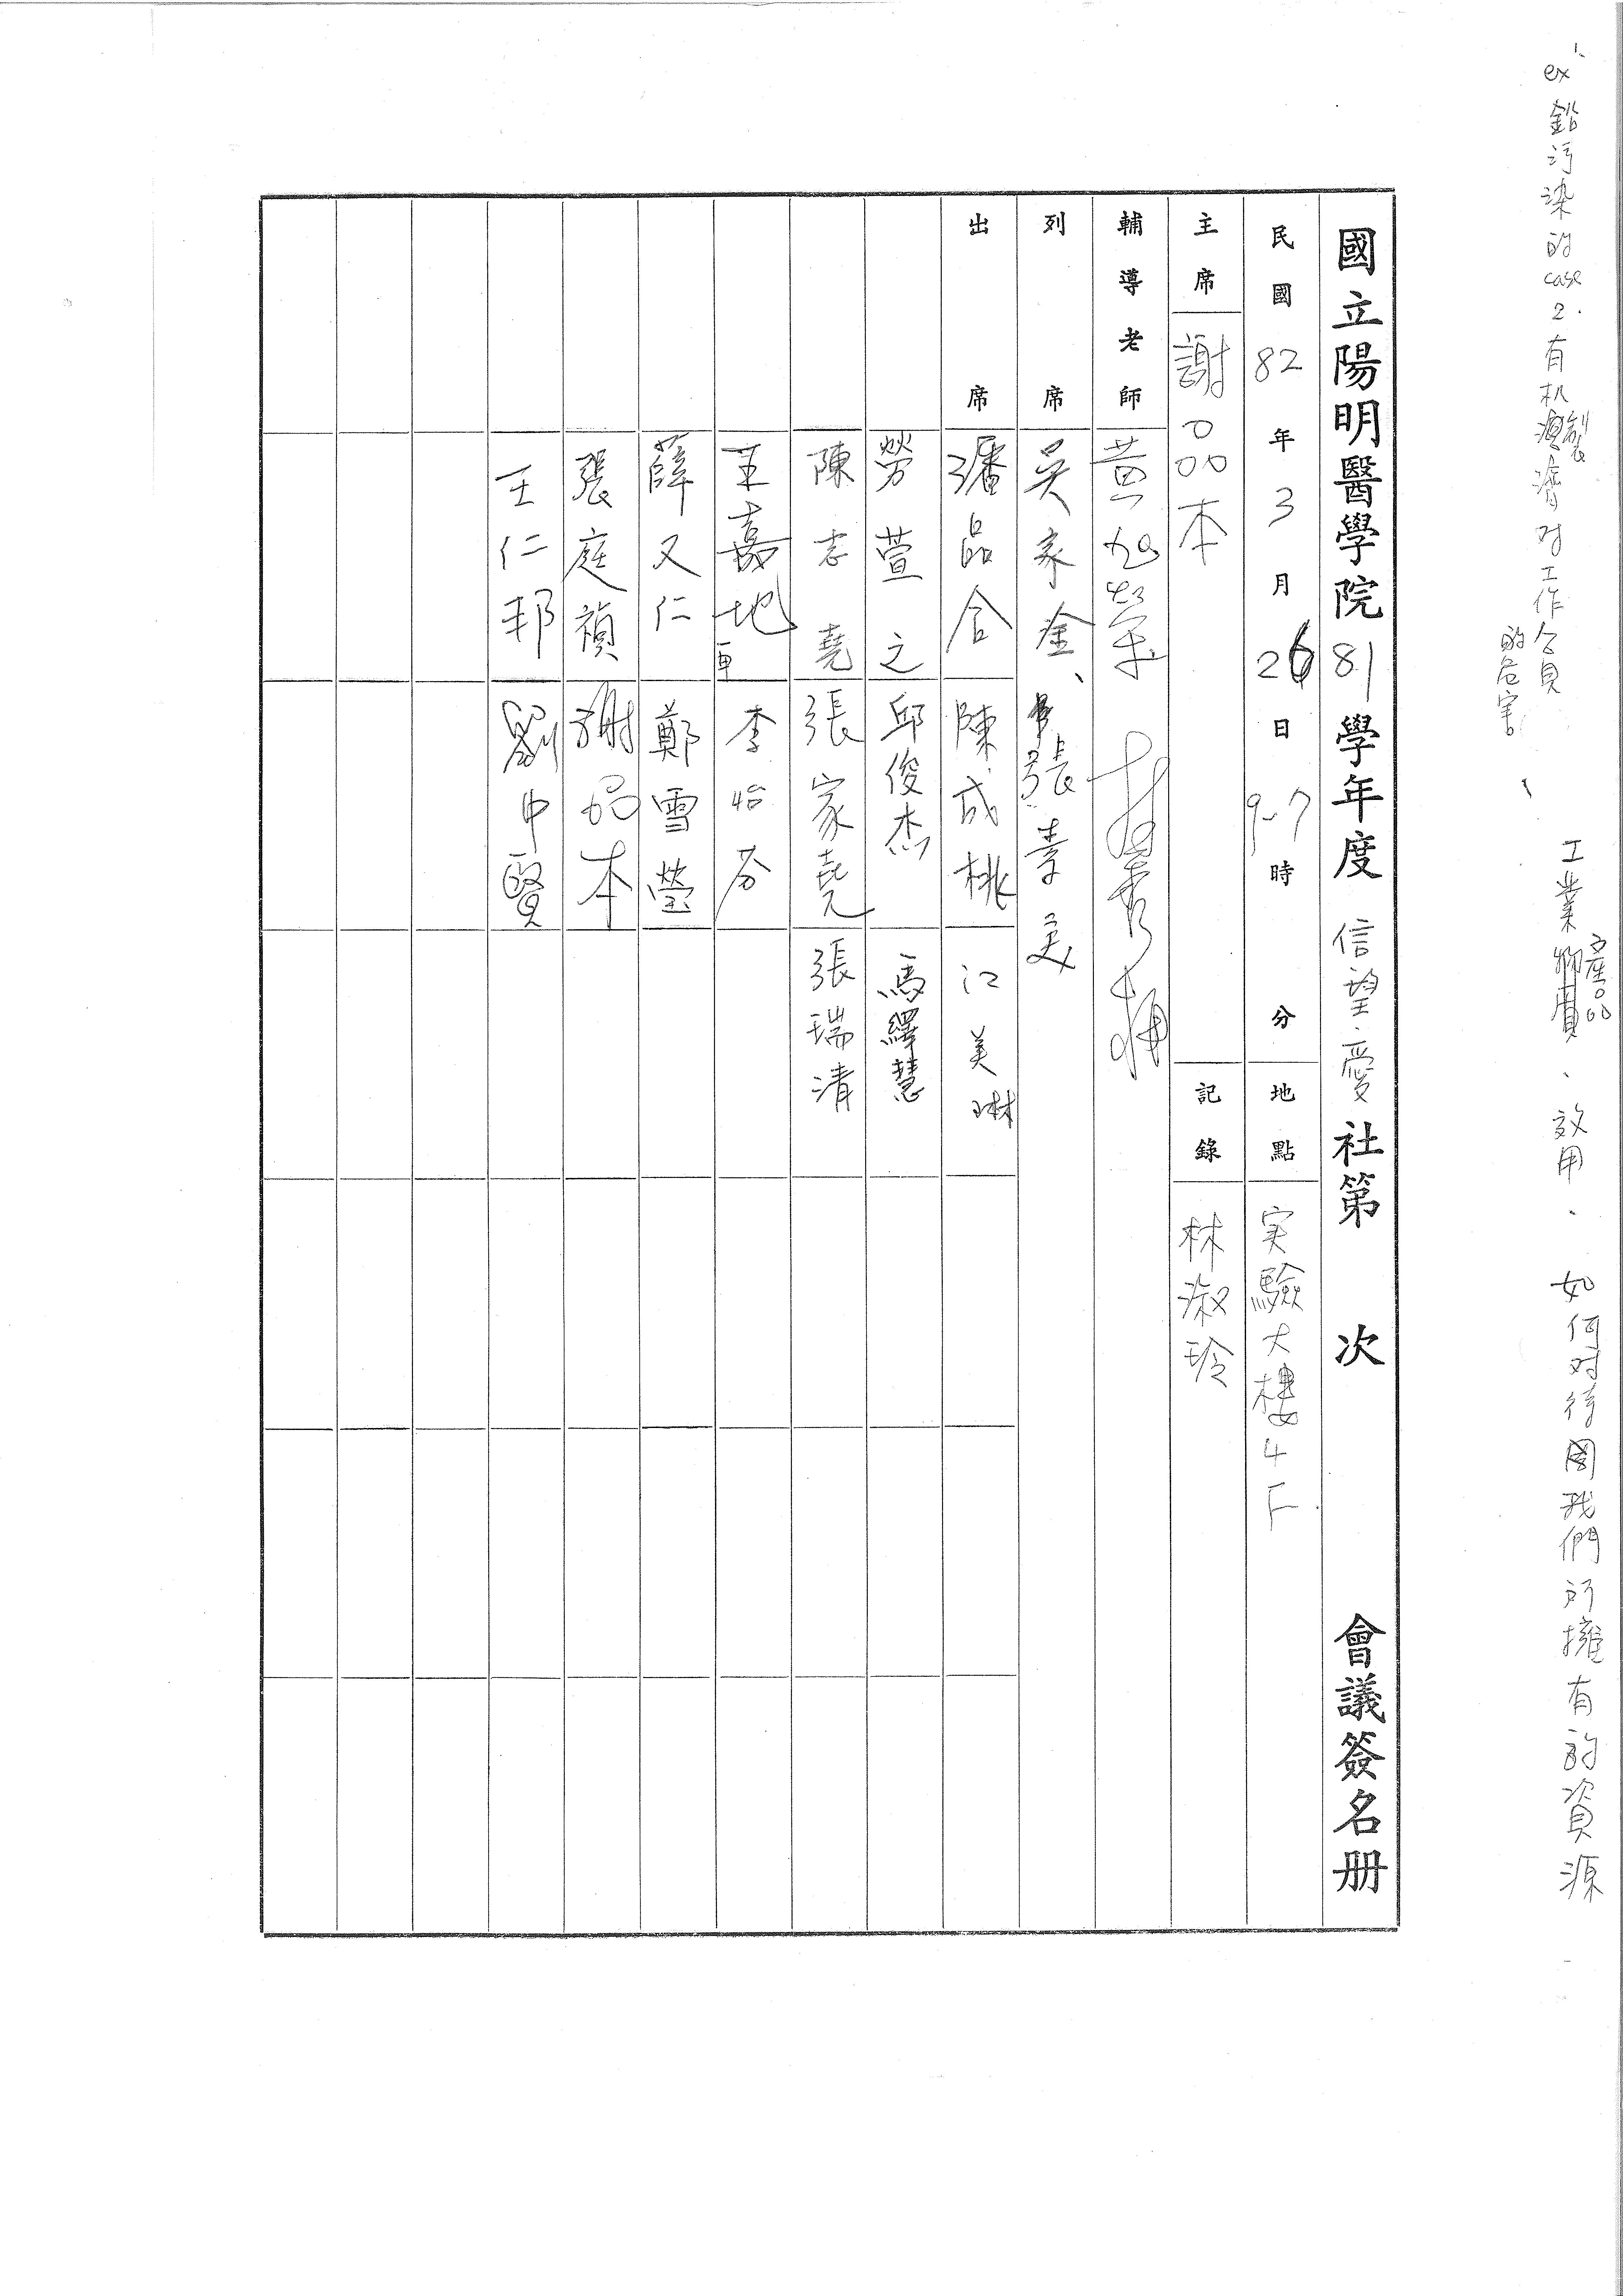 ex 1. 鉛污染的case 2. 有机製濟对工作人員的危害、
工業產品、效用、如何对待我們所擁有的資源
國立陽明醫學院81學年度信望愛社第 次 會議簽名册
民國82年3月26日9-7時 分 地點 实驗大樓4F
主席 謝品本 記錄 林淑玲
輔導老師 黃
列席 吳家金、張素美
出席 潘品合 陳成桃 江美琳
勞萱之 邱俊杰 馬繹慧
陳志堯 張家堯 張瑞清
王嘉地 李怡芬
薛又仁 鄭雪瑩
張庭禎 謝品本
王仁邦 劉中賢